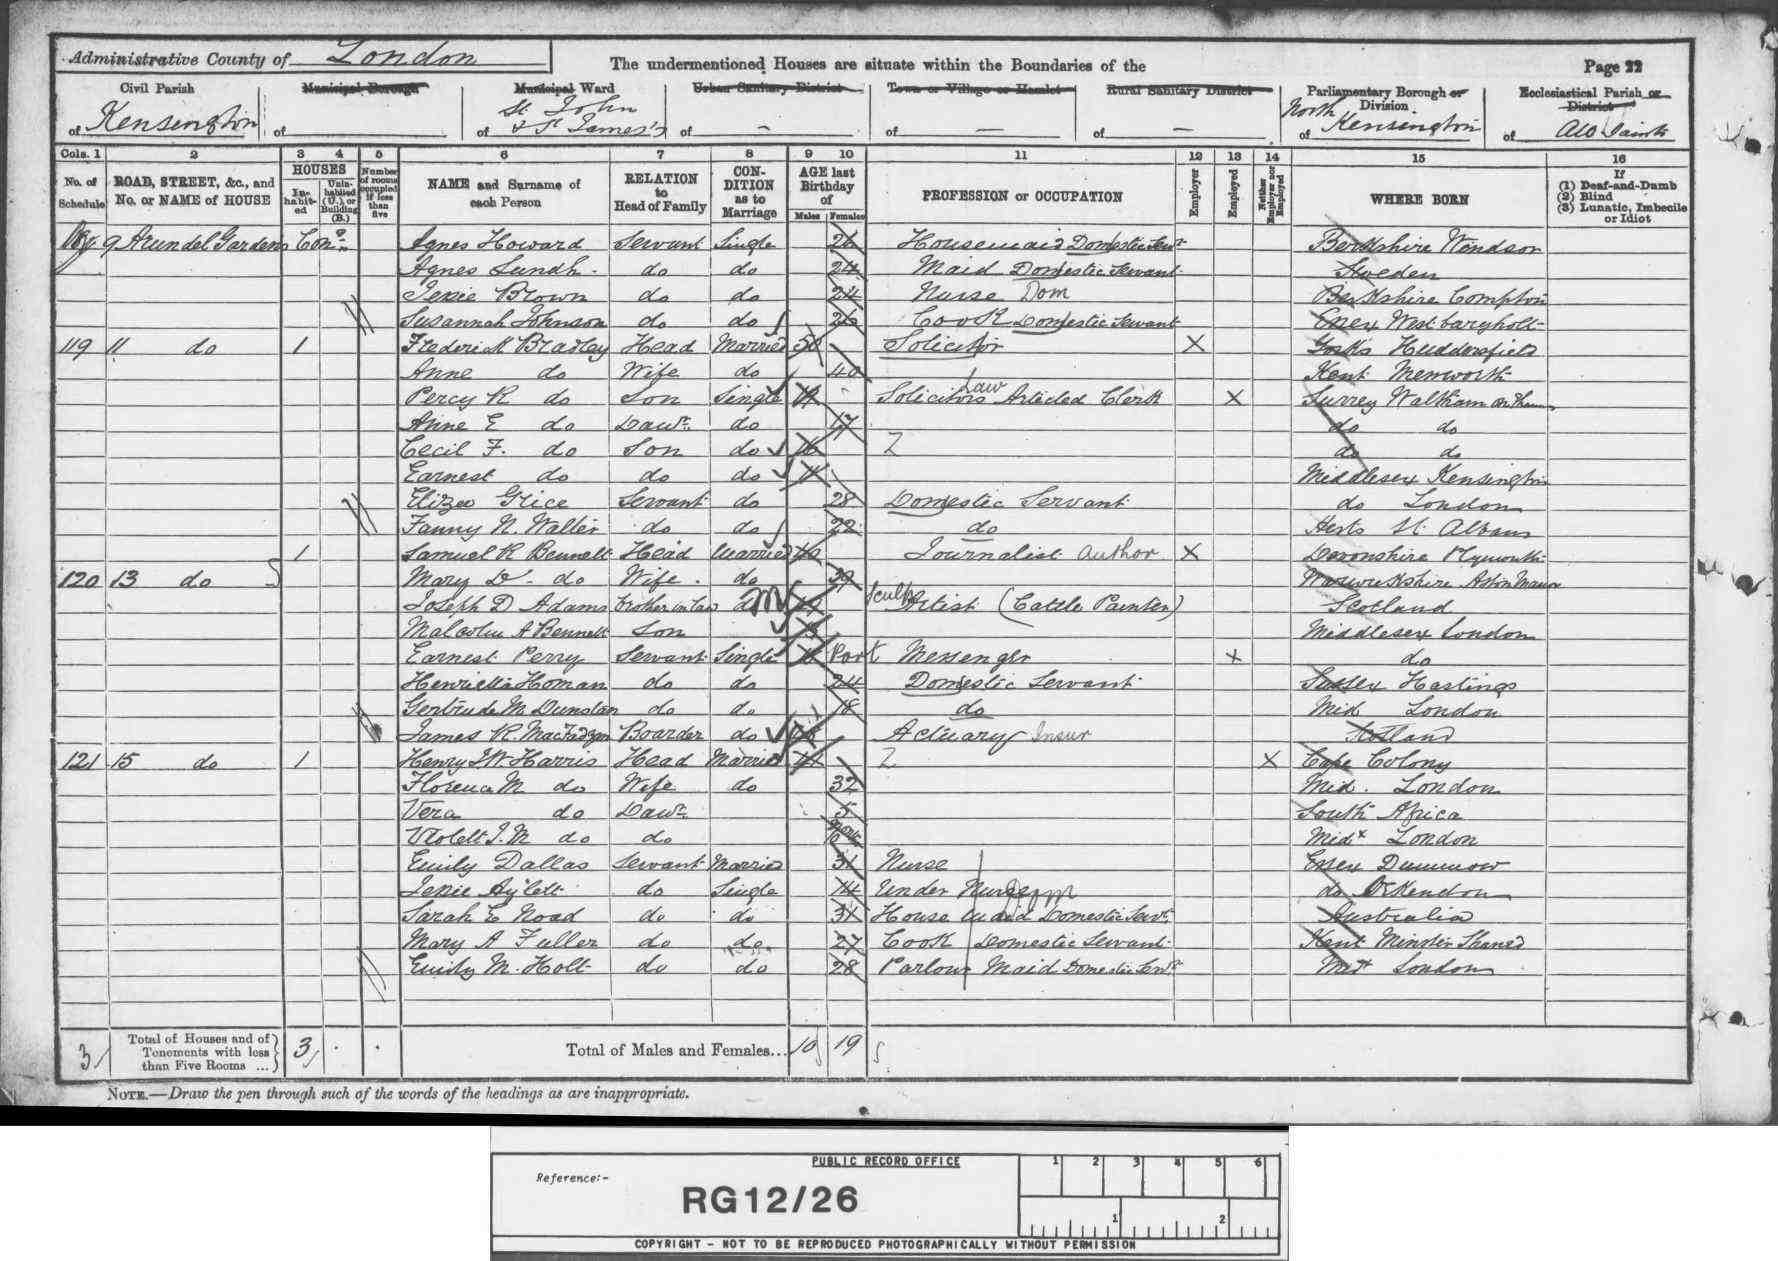 Administrative County of London
The undermentioned Houses are situate within the Boundaries of the
Page 22
Civil Parish of Kensington
Municipal Borough of
Municipal Ward of St John & St James's
Urban Sanitary District of —
Town or Village or Hamlet of —
Rural Sanitary District of —
Parliamentary Borough or Division of North Kensington
Ecclesiastical Parish or District of All Saints
Cols. 1 2 3 4 5 6 7 8 9 10 11 12 13 14 15 16
No. of Schedule
ROAD, STREET, &c., and No. or NAME of HOUSE
HOUSES
In-habit-ed
Unin-habited (U.), or Building (B.)
Number of rooms occupied if less than five
NAME and Surname of each Person
RELATION to Head of Family
CON-DITION as to Marriage
AGE last Birthday of
Males Females
PROFESSION or OCCUPATION
Employer
Employed
Neither Employer nor Employed
WHERE BORN
If (1) Deaf-and-Dumb (2) Blind (3) Lunatic, Imbecile or Idiot
9 Arundel Gardens Con Agnes Howard Servant Single 26 Housemaid Domestic Serv Berkshire Windsor
Agnes Lundh do do 24 Maid Domestic Servant Sweden
Jessie Brown do do 24 Nurse Dom Berkshire Compton
Susannah Johnson do do 26 Cook Domestic Servant Essex West bargholt
119 11 do 1 Frederick Bradley Head Married 50 Solicitor X Yorks Huddersfield
Anne do Wife do 40 Kent Mereworth
Percy R do Son Single 19 Solicitors Law Articled Clerk X Surrey Waltham on Thames
Anne E do Dawr do 17 do do
Cecil F. do Son do 16 do do
Earnest do do do 11 Middlesex Kensington
Eliza Grice Servant do 28 Domestic Servant do London
Fanny N. Waller do do 22 do Herts St Albans
1 Samuel R Bennett Head Married 40 Journalist Author X Devonshire Plymouth
120 13 do Mary D. do Wife do 39 Warwickshire Aston Manor
Joseph D Adams brother in law M Sculp Artist (Cattle Painter) Scotland
Malcolm A Bennett Son Middlesex London
Earnest Perry Servant Single 16 Port Messenger X do
Henrietta Homan do do 24 Domestic Servant Sussex Hastings
Gertrude M Dunstan do do 18 do Mid London
James R. MacFadyen Boarder do Actuary Insur Scotland
121 15 do 1 Henry J W Harris Head Married X Cape Colony
Florence M do Wife do 32 Mid. London
Vera do Dawr 5 South Africa
Violett J. M do do Midx London
Emily Dallas Servant Married 31 Nurse Essex Dunmow
Jessie Aylett do Single 14 Under Nurse Dom do Ockendon
Sarah E Noad do do 31 House Maid Domestic Servt Australia
Mary A Fuller do do 27 Cook Domestic Servant Kent Minster Thaned
Emily M. Holt do do 28 Parlour Maid Domestic Servt Midx London
3 Total of Houses and of Tenements with less than Five Rooms ... 3 Total of Males and Females... 10 19
NOTE.—Draw the pen through such of the words of the headings as are inappropriate.
PUBLIC RECORD OFFICE
1 2 3 4 5 6
Reference:-
RG12/26
1 2
COPYRIGHT - NOT TO BE REPRODUCED PHOTOGRAPHICALLY WITHOUT PERMISSION